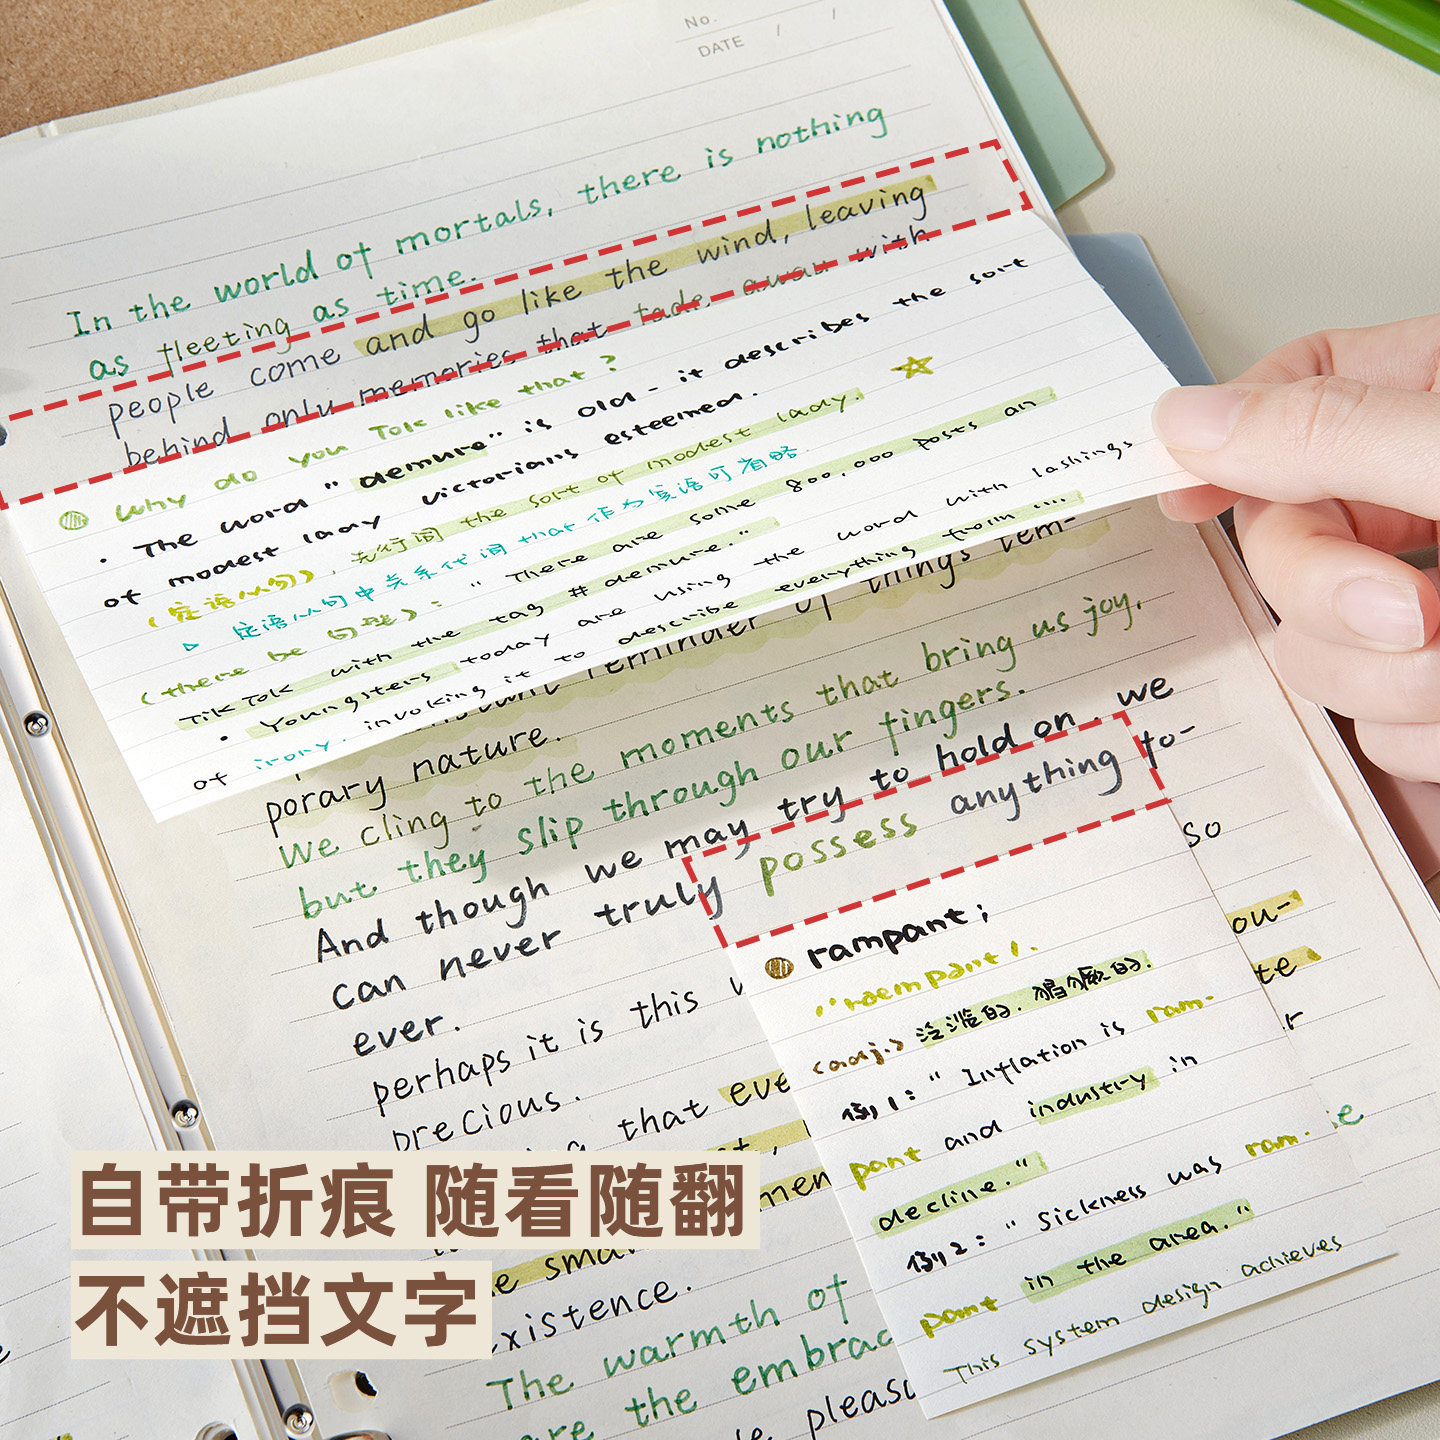 No.
DATE / /
In the world of mortals, there is nothing
as fleeting as time.
people come and go like the wind, leaving
behind only memories that fade away with
Why do you Tok like that?
· The word "demure" is old - it describes the sort
of modest lady victorians esteemed.
(定语从句), 先行词 the sort of modest lady.
▷ 定语从句中关系代词 that 作为宾语可省略.
(there be 句型): "There are some 800,000 posts on
TikTok with the tag #demure."
· Youngsters today are using the word with lashings
of irony. invoking it to describe everything from ....
reminder of things tem-
porary nature.
We cling to the moments that bring us joy,
but they slip through our fingers.
And though we may try to hold on, we
can never truly possess anything to-
ever.
so
perhaps it is this
precious.
that eve
rampant;
/'raempənt/.
(adj.) 泛滥的. 猖獗的.
例1: "Inflation is ram-
pant and industry in
decline."
例2: "Sickness was ram-
pant in the area."
This system design achieves
ou-
te
smal
existence.
The warmth of
are the embrac
pleasu
自带折痕 随看随翻
不遮挡文字